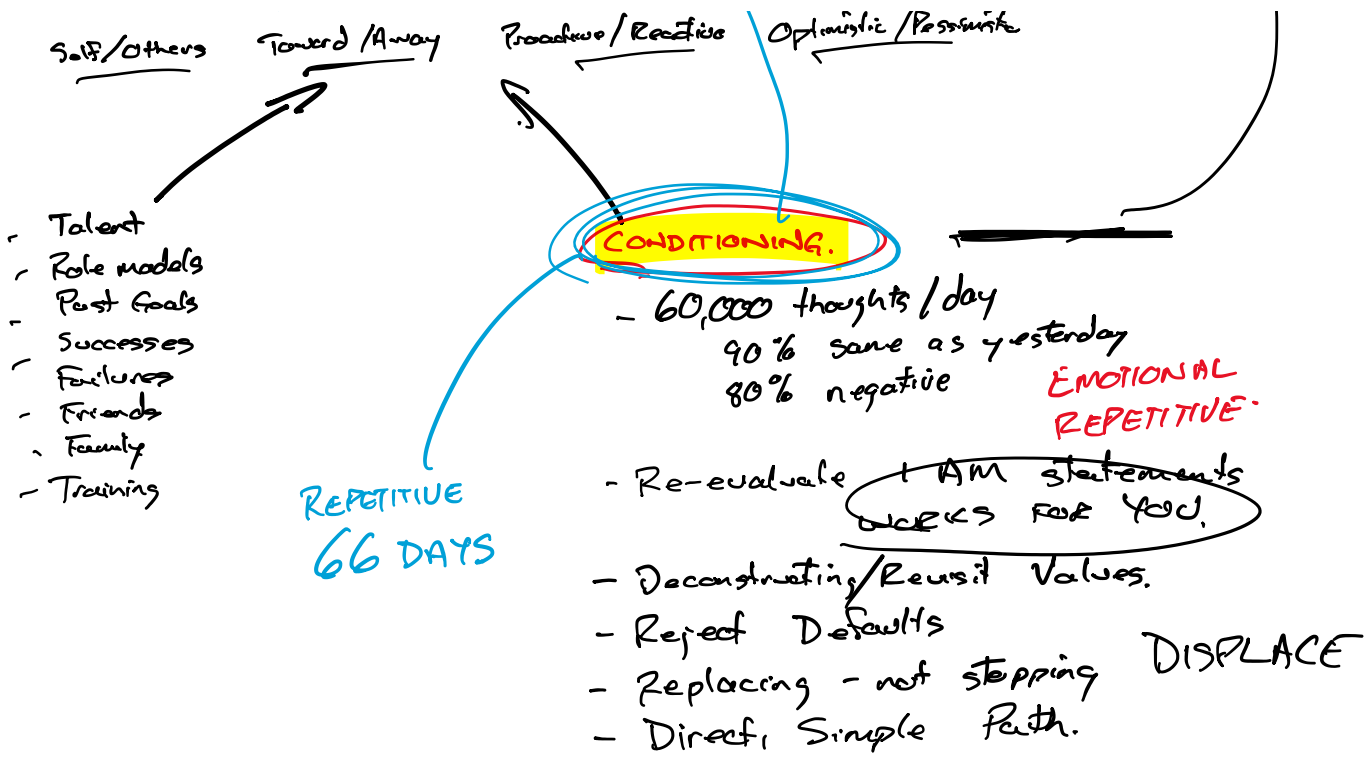 Self/Others Toward/Away Proactive/Reactive Optimistic/Pessimistic
- Talent
- Role models
- Past Goals
- Successes
- Failures
- Friends
- Family
- Training
CONDITIONING.
- 60,000 thoughts/day
90% same as yesterday
80% negative
EMOTIONAL
REPETITIVE.
REPETITIVE
66 DAYS
- Re-evaluate I AM statements
WORKS FOR YOU.
- Deconstructing/Revisit Values.
- Reject Defaults
- Replacing - not stopping
DISPLACE
- Direct, Simple Path.